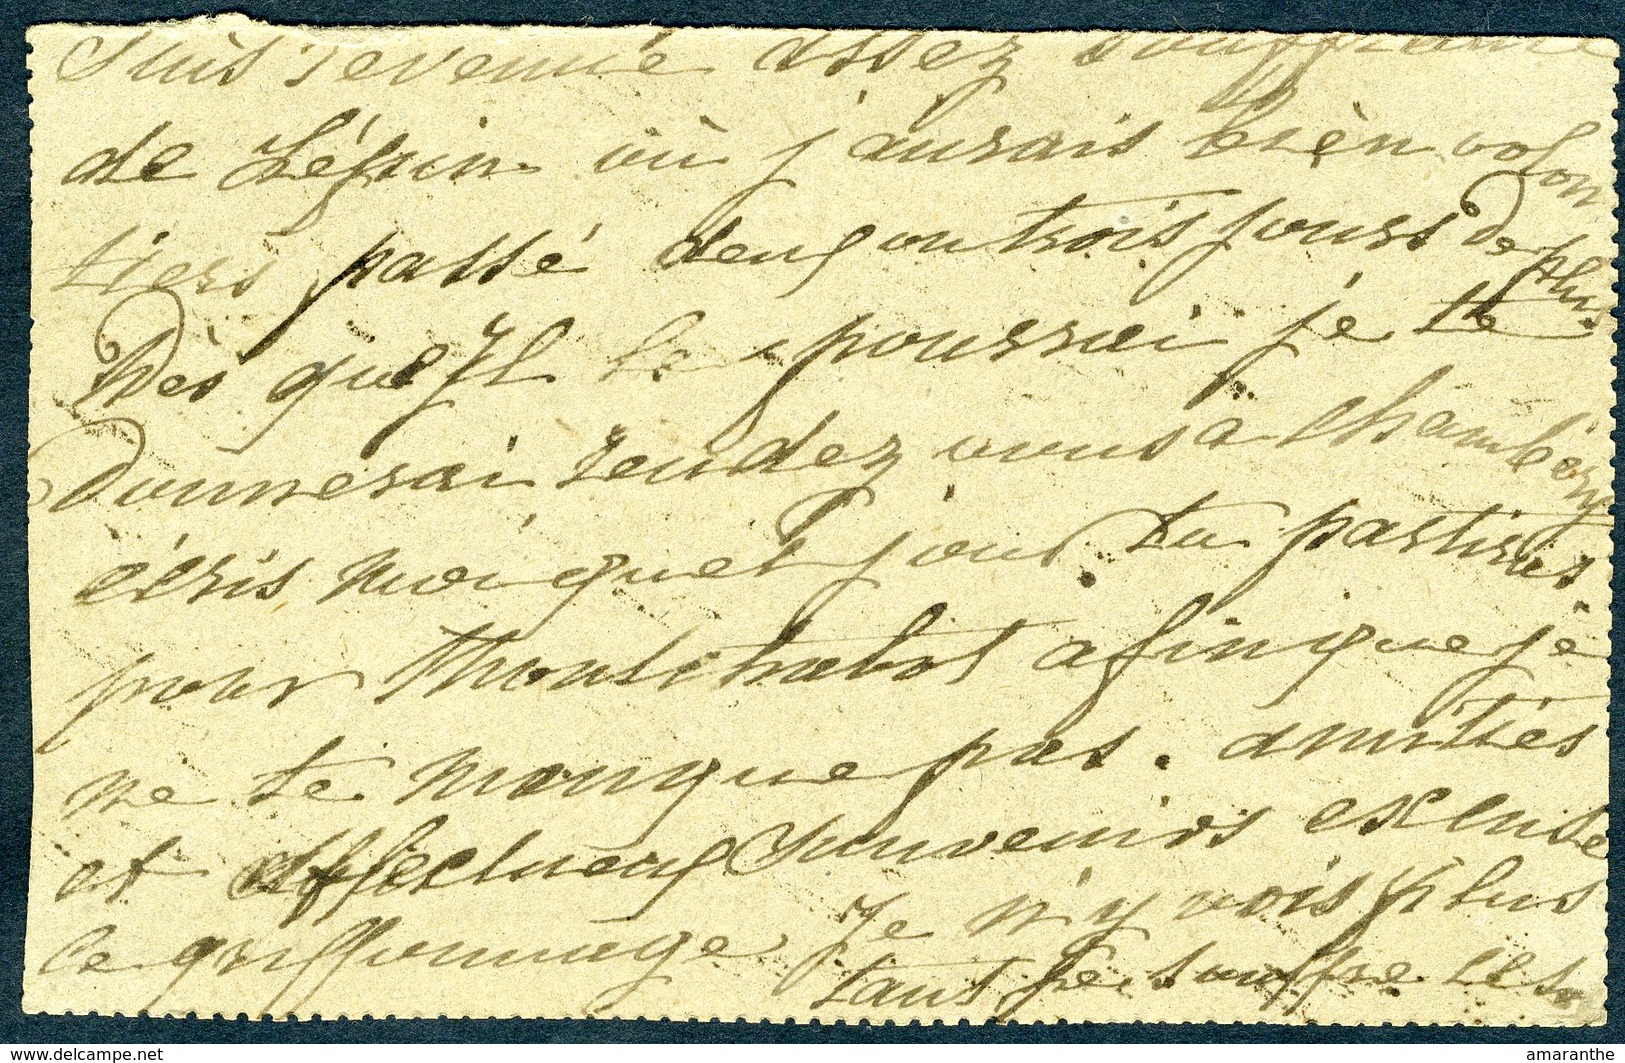 suis revenue assez souffrante
de Lépin où j'aurais bien volon
tiers passé deux ou trois jours de plus.
Dès qu'il le pourrai je te
donnerai rendez vous a chambéry
écris moi quel jour tu partiras
pour Montchabot afin que je
ne te manque pas. amitiés
et affectueux souvenirs excuse
ce griffonnage Je n'y vois plus
tant je souffre
delcampe.net
amaranthe